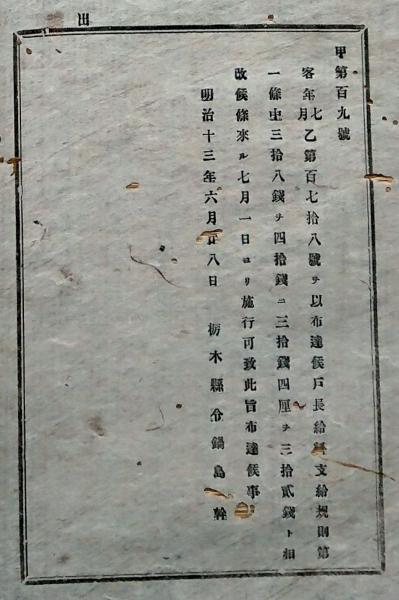 甲第百九號
客年七月乙第百七拾八號ヲ以布達候戸長給料支給規則第
一條中三拾八錢ヲ四拾錢ニ三拾錢四厘ヲ三拾貳錢ト相
改候條來ル七月一日ヨリ施行可致此旨布達候事
明治十三年六月廿八日　栃木縣令鍋島幹
出